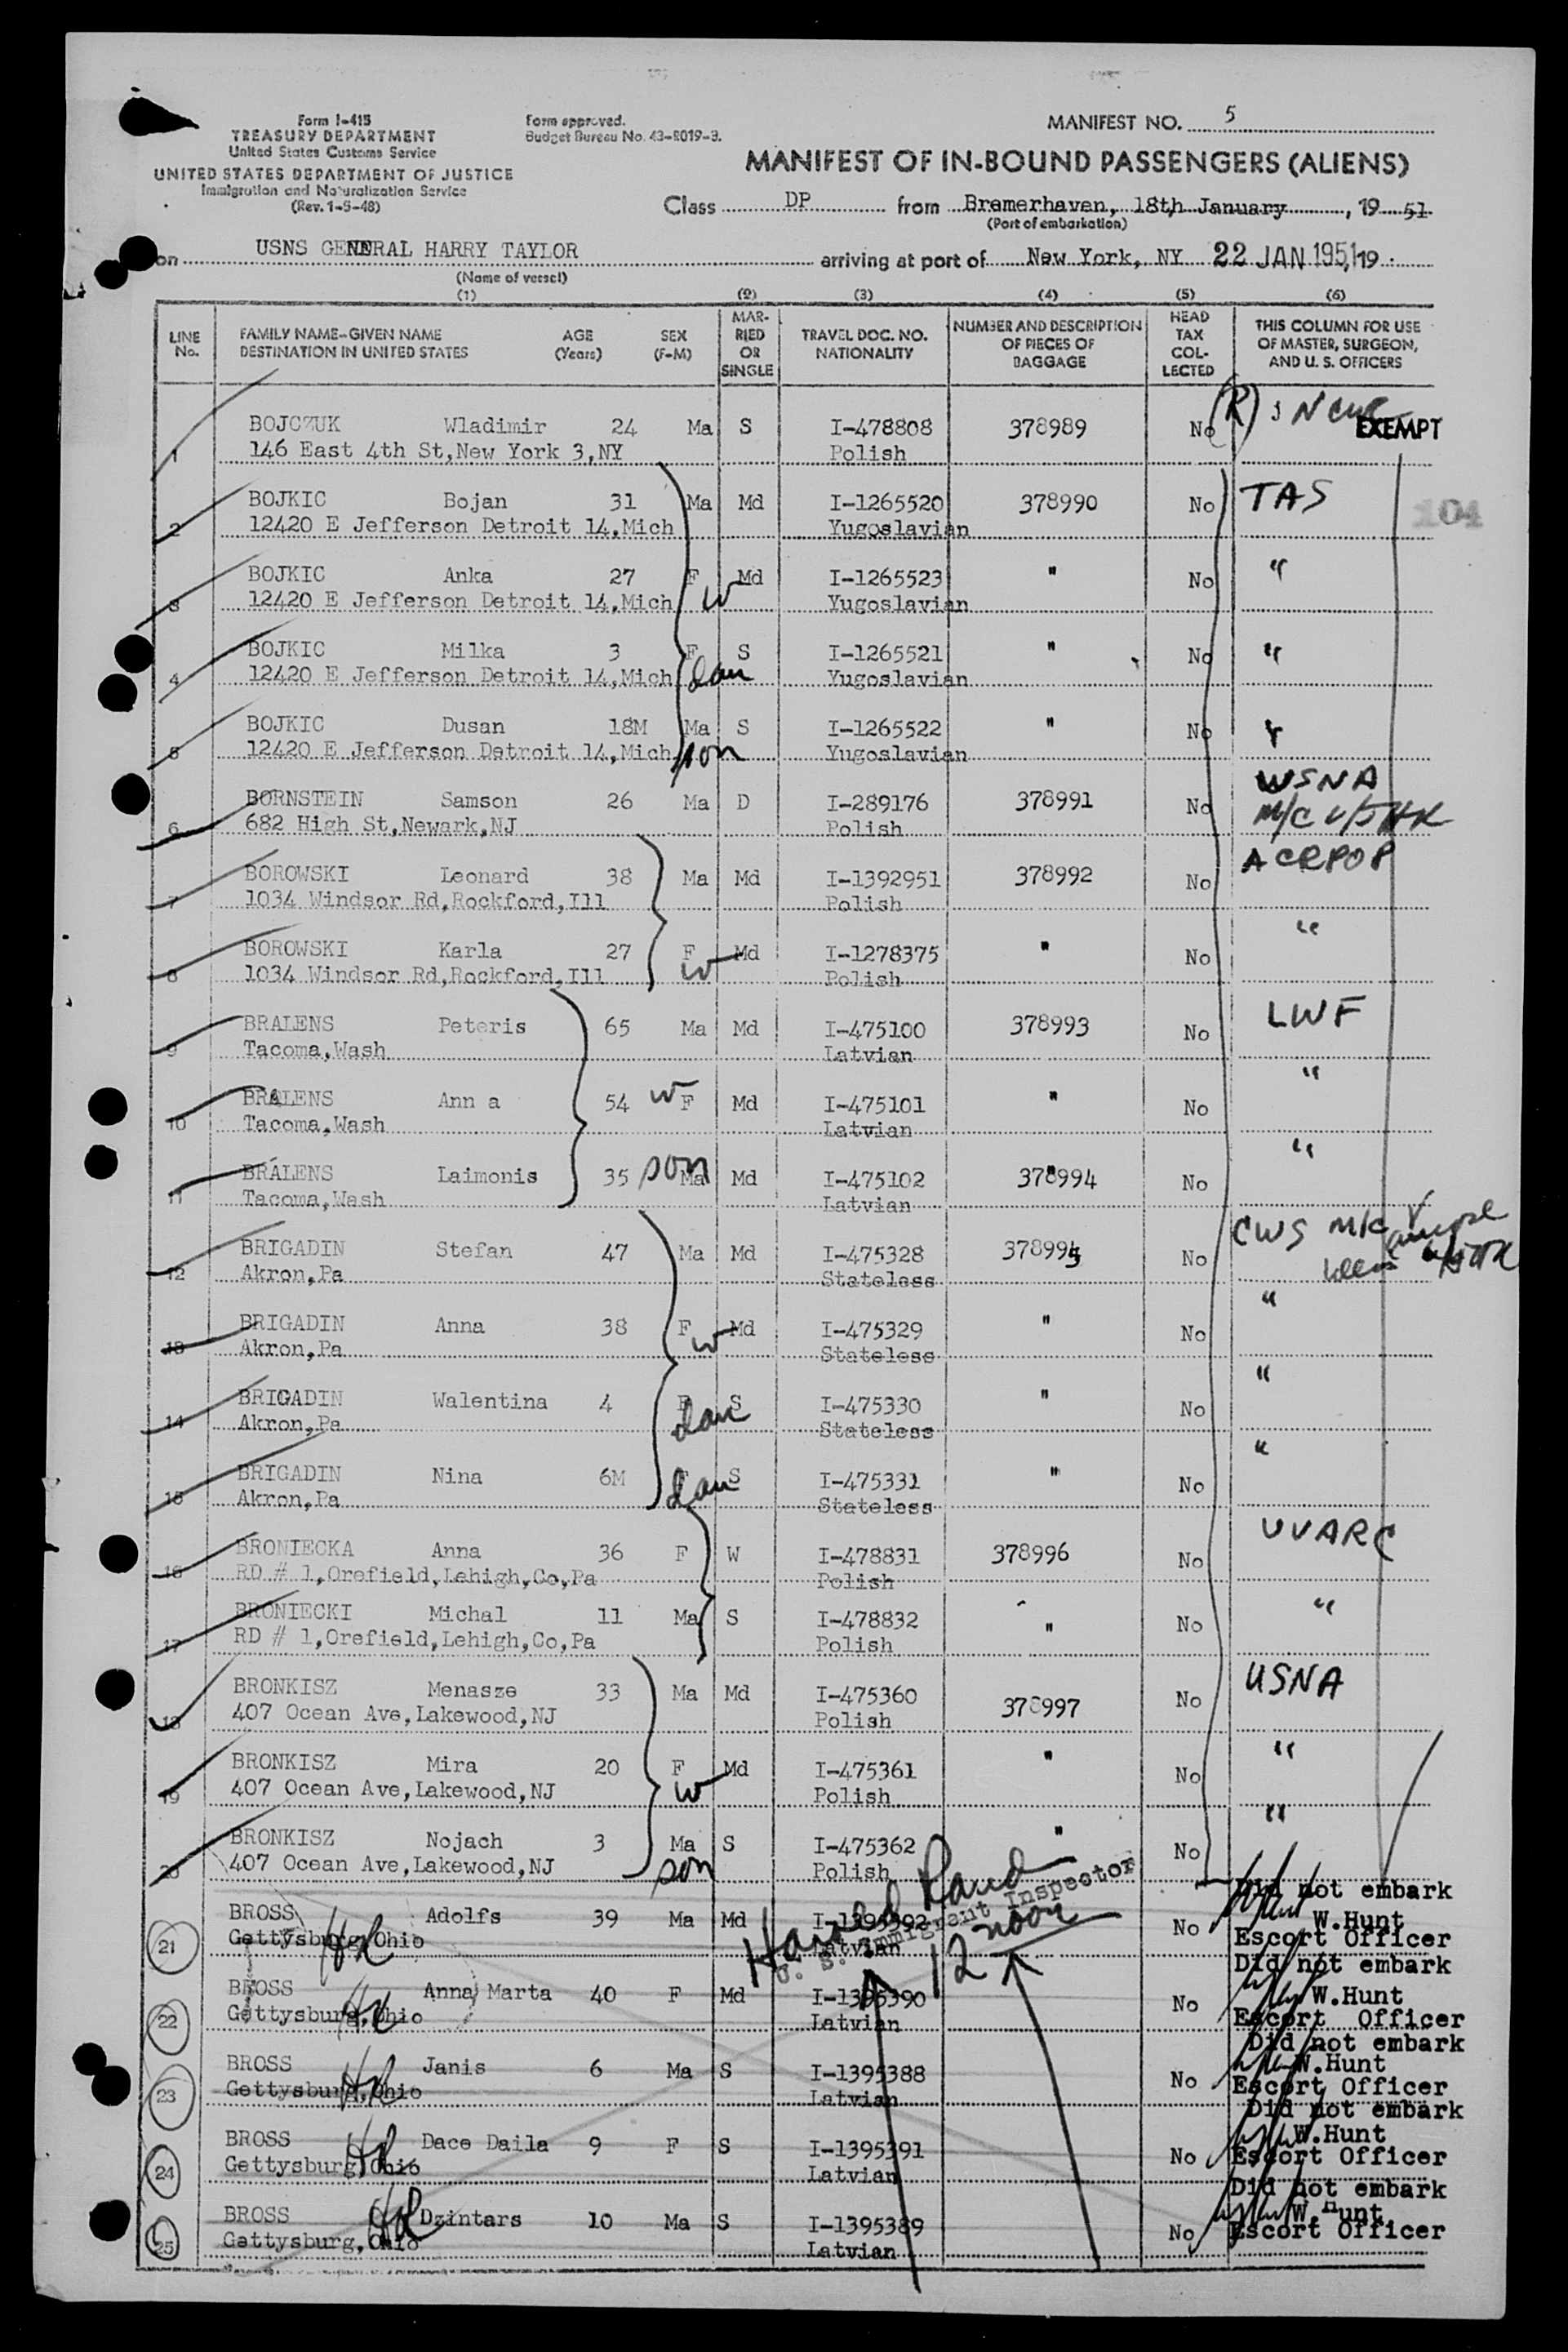 Form I-415
TREASURY DEPARTMENT
United States Customs Service
UNITED STATES DEPARTMENT OF JUSTICE
Immigration and Naturalization Service
(Rev. 1-5-48)
Form approved.
Budget Bureau No. 43-R019-3.
MANIFEST NO. 5
MANIFEST OF IN-BOUND PASSENGERS (ALIENS)
Class DP from Bremerhaven, 18th January, 19 51
(Port of embarkation)
on USNS GENERAL HARRY TAYLOR arriving at port of New York, NY 22 JAN 1951 19
(Name of vessel)
(1) (2) (3) (4) (5) (6)
LINE No. FAMILY NAME-GIVEN NAME DESTINATION IN UNITED STATES AGE (Years) SEX (F-M) MARRIED OR SINGLE TRAVEL DOC. NO. NATIONALITY NUMBER AND DESCRIPTION OF PIECES OF BAGGAGE HEAD TAX COLLECTED THIS COLUMN FOR USE OF MASTER, SURGEON, AND U. S. OFFICERS
1 BOJCZUK Wladimir 24 Ma S I-478808 378989 No (R) NCWC EXEMPT
146 East 4th St,New York 3,NY Polish
2 BOJKIC Bojan 31 Ma Md I-1265520 378990 No TAS 104
12420 E Jefferson Detroit 14,Mich Yugoslavian
3 BOJKIC Anka 27 F Md I-1265523 " No "
12420 E Jefferson Detroit 14,Mich w Yugoslavian
4 BOJKIC Milka 3 F S I-1265521 " No "
12420 E Jefferson Detroit 14,Mich dau Yugoslavian
5 BOJKIC Dusan 18M Ma S I-1265522 " No "
12420 E Jefferson Detroit 14,Mich son Yugoslavian
6 BORNSTEIN Samson 26 Ma D I-289176 378991 No USNA
682 High St,Newark,NJ Polish M/C
7 BOROWSKI Leonard 38 Ma Md I-1392951 378992 No ACRPOP
1034 Windsor Rd,Rockford,Ill Polish
8 BOROWSKI Karla 27 F Md I-1278375 " No "
1034 Windsor Rd,Rockford,Ill w Polish
9 BRALENS Peteris 65 Ma Md I-475100 378993 No LWF
Tacoma,Wash Latvian
10 BRALENS Ann a 54 w F Md I-475101 " No "
Tacoma,Wash Latvian
11 BRALENS Laimonis 35 son Ma Md I-475102 378994 No "
Tacoma,Wash Latvian
12 BRIGADIN Stefan 47 Ma Md I-475328 378995 No CWS M/C
Akron,Pa Stateless
13 BRIGADIN Anna 38 F w Md I-475329 " No "
Akron,Pa Stateless
14 BRIGADIN Walentina 4 F S I-475330 " No "
Akron,Pa dau Stateless
15 BRIGADIN Nina 6M F S I-475331 " No "
Akron,Pa dau Stateless
16 BRONIECKA Anna 36 F W I-478831 378996 No UUARC
RD # 1,Orefield,Lehigh,Co,Pa Polish
17 BRONIECKI Michal 11 Ma S I-478832 " No "
RD # 1,Orefield,Lehigh,Co,Pa Polish
18 BRONKISZ Menasze 33 Ma Md I-475360 378997 No USNA
407 Ocean Ave,Lakewood,NJ Polish
19 BRONKISZ Mira 20 F Md I-475361 " No "
407 Ocean Ave,Lakewood,NJ w Polish
20 BRONKISZ Nojach 3 Ma S I-475362 " No "
407 Ocean Ave,Lakewood,NJ son Polish
Harold Rand
U. S. Immigrant Inspector
12 noon
Did not embark
21 BROSS Adolfs 39 Ma Md I-1395392 No W.Hunt
Gettysburg,Ohio HR Latvian Escort Officer
Did not embark
22 BROSS Anna Marta 40 F Md I-1395390 No W.Hunt
Gettysburg,Ohio HR Latvian Escort Officer
Did not embark
23 BROSS Janis 6 Ma S I-1395388 No W.Hunt
Gettysburg,Ohio HR Latvian Escort Officer
Did not embark
24 BROSS Dace Daila 9 F S I-1395391 No W.Hunt
Gettysburg,Ohio HR Latvian Escort Officer
Did not embark
25 BROSS Dzintars 10 Ma S I-1395389 No W.Hunt
Gettysburg,Ohio HR Latvian Escort Officer